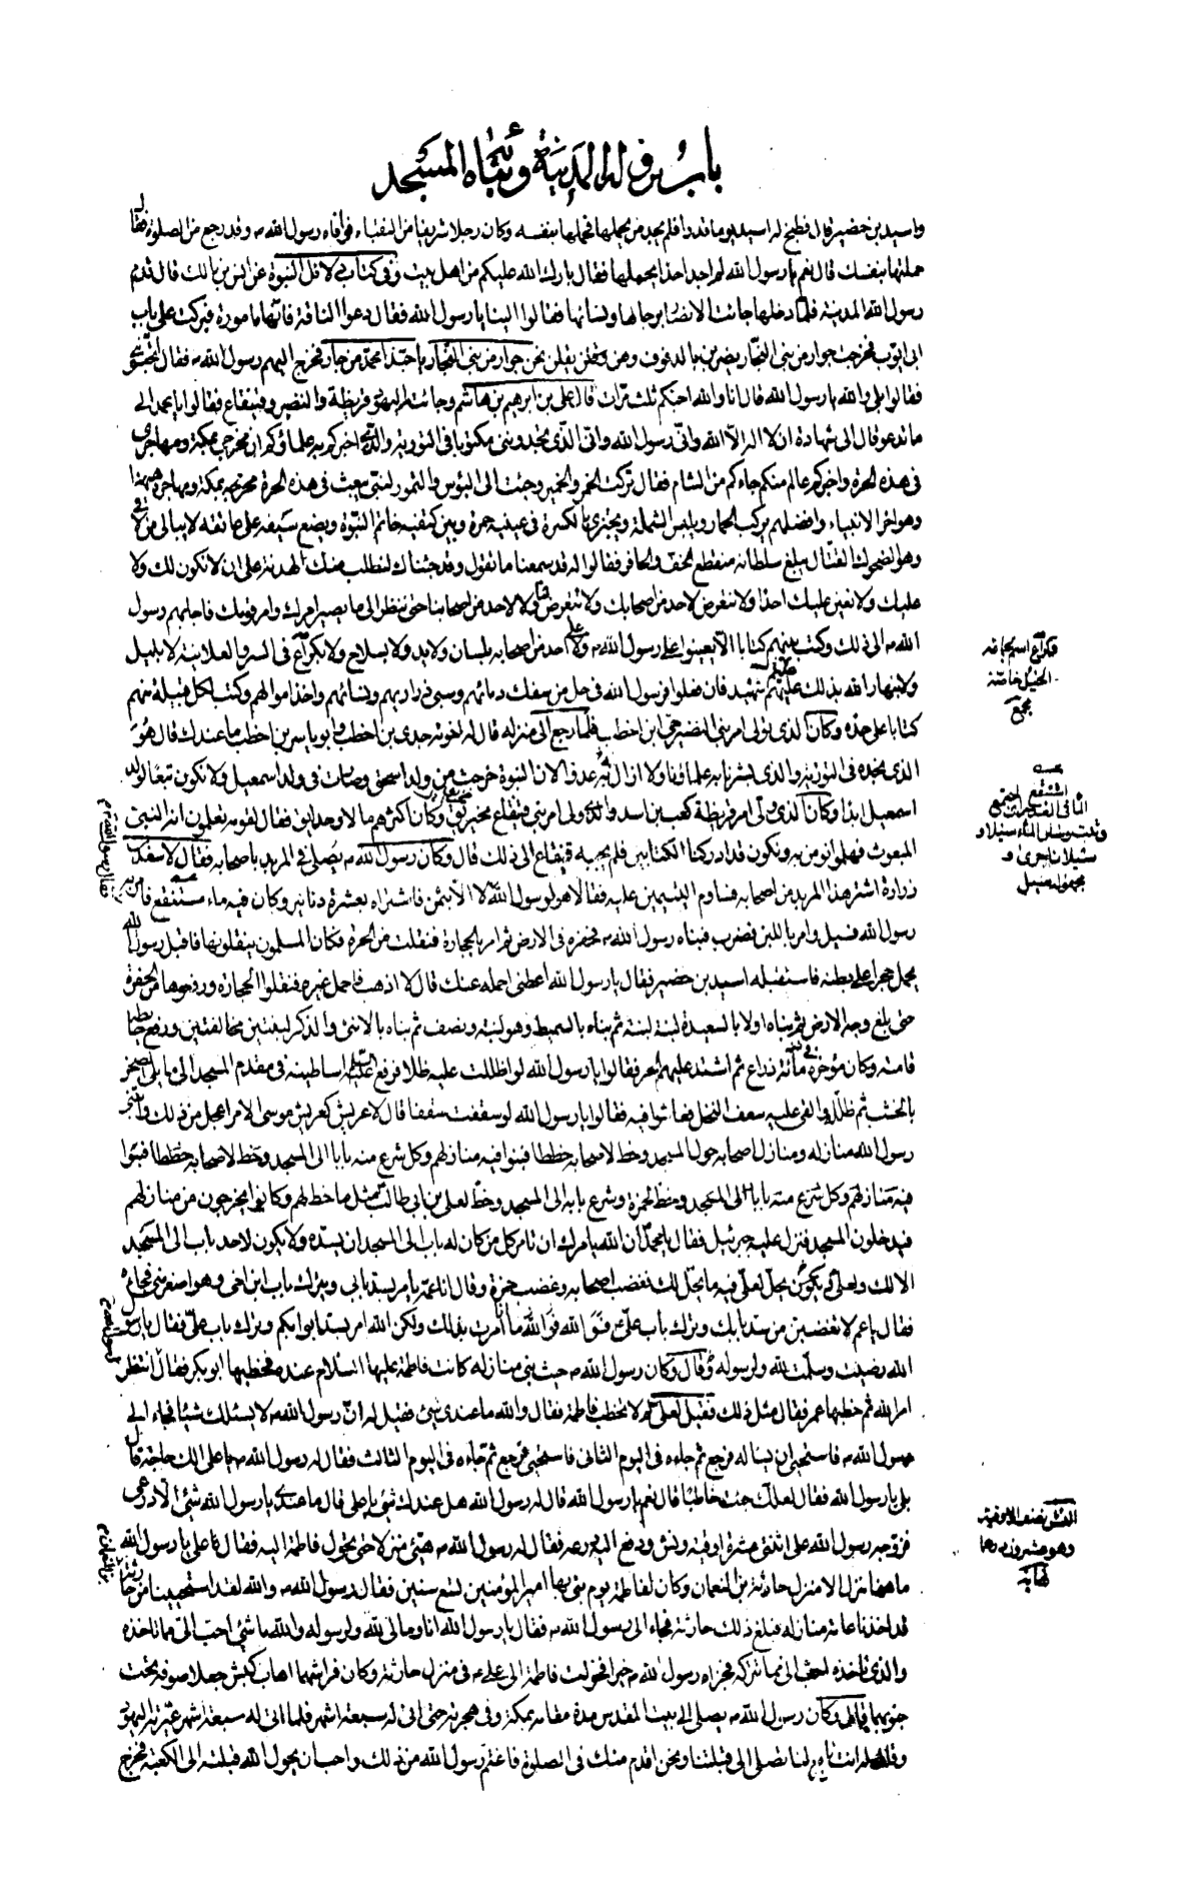 باب نزوله المدينة وبنائه المسجد
واسيد بن حضير قال فطبخ له اسيد يوما قدرا فلم يجد من يحملها فحملها بنفسه وكان رجلا شريفا من النقباء فوافاه رسول الله ص وقد رجع من الصلوة فقال
حملتها بنفسك قال نعم يا رسول الله لم اجد احدا يحملها فقال بارك الله عليكم من اهل بيت وفى كتاب دلائل النبوة عن انس بن مالك قال قدم
رسول الله المدينة فلما دخلها جائت الانصار برجالها ونسائها فقالوا الينا يا رسول الله فقال دعوا الناقة فانها مامورة فبركت على باب
ابى ايوب فخرجت جوار من بنى النجار يضربن بالدفوف وهن يقلن نحن جوار من بنى النجار يا حبّذا محمّد من جار فخرج اليهم رسول الله ص فقال اتحبّونى
فقالوا بلى والله يا رسول الله قال انا والله احبكم ثلث مرّات قال على بن ابرهيم بن هاشم وجائت اليهود قريظة والنضير وقينقاع فقالوا يا محمد الى
ما تدعو قال الى شهادة ان لا اله الّا الله وانّى رسول الله وانى الّذى تجدوننى مكتوبا فى التورية والّذى اخبركم به علماؤكم ان مخرجى بمكة ومهاجرى
فى هذه الحرة واخبركم عالم منكم جاءكم من الشام فقال تركت الخمر والخمير وجئت الى البؤس والتمور لنبى يبعث فى هذه الحرة مخرجه بمكة ومهاجره ههنا
وهو اخر الانبياء وافضلهم يركب الحمار ويلبس الشملة ويجتزى بالكسرة فى عينيه حمرة وبين كتفيه خاتم النبوّة ويضع سيفه على عاتقه لا يبالى من لاقى
وهو الضحوك القتّال يبلغ سلطانه منقطع الخف والحافر فقالوا له قد سمعنا ما تقول وقد جئناك لنطلب منك الهدنة على ان لا نكون لك ولا
عليك ولا نعين عليك احدا ولا نتعرض لاحد من اصحابك ولا تتعرض لنا ولا لاحد من اصحابنا حتى ننظر الى ما يصير امرك وامر قومك فاجابهم رسول
الله ص الى ذلك وكتب بينهم كتابا الّا يعينوا على رسول الله ص ولا على احد من اصحابه بلسان ولا يد ولا بسلاح ولا بكراع فى السر والعلانية لا بليل
ولا بنهار الله بذلك عليهم شهيد فان فعلوا فرسول الله فى حل من سفك دمائهم وسبى ذراريهم ونسائهم واخذ اموالهم وكتب لكل قبيلة منهم
كتابا على حده وكان الذى تولى امر بنى النضير حيى ابن اخطب فلما رجع الى منزله قال له اخوته جدى بن اخطب وابو ياسر بن اخطب ما عندك قال هو
الذى نجده فى التورية والذى بشرنا به علماؤنا ولا ازال له عدوا لان النبوة خرجت من ولد اسحق وصارت فى ولد اسمعيل ولا نكون تبعا لولد
اسمعيل ابدا وكان الذى ولى امر قريظة كعب بن اسد والذى ولى امر بنى قينقاع مخيريق وكان اكثرهم مالا وحدايق فقال لقومه تعلمون انه النبى
المبعوث فهلموا نومن به ونكون قد ادركنا الكتابين فلم يجبه قينقاع الى ذلك قال وكان رسول الله ص يصلى فى المربد باصحابه فقال لاسعد بن
زرارة اشتر هذا المربد من اصحابه فساوم اليتيمين عليه فقالا هو لرسول الله فقال رسول الله ص لا الّا بثمن فاشتراه بعشرة دنانير وكان فيه ماء مستنقع فامر به
رسول الله فسيل وامر باللبن فضرب فبناه رسول الله ص فحفره فى الارض ثم امر بالحجارة فنقلت من الحرة فكان المسلمون ينقلونها فاقبل رسول الله
يحمل حجرا على بطنه فاستقبله اسيد بن حضير فقال يا رسول الله اعطنى احمله عنك قال لا اذهب فاحمل غيره فنقلوا الحجارة ورفعوها من الحفرة
حتى بلغ وجه الارض ثم بناه اولا بالسعيدة لبنة لبنة ثم بناه بالسميط وهو لبنة ونصف ثم بناه بالانثى والذكر لبنتين مخالفتين ورفع حائطه
قامة وكان مؤخره مائة ذراع ثم اشتد عليهم الحر فقالوا يا رسول الله لو اظللت عليه ظلا فرفع اساطينه فى مقدم المسجد الى ما يلى الصحن
بالخشب ثم ظلله والقى عليه سعف النخل فعاشوا فيه فقالوا يا رسول الله لو سقفت سقفا قال لا عريش كعريش موسى الامر اعجل من ذلك وابتنى
رسول الله منازله ومنازل اصحابه حول المسجد وخط لاصحابه خططا فبنوا فيه منازلهم وكل شرع منه بابا الى المسجد وخط لاصحابه خططا فبنوا
فيه منازلهم وكل شرع منه بابا الى المسجد وخط لحمزة وشرع بابه الى المسجد وخط لعلى بن ابى طالب مثل ما خط لهم وكانوا يخرجون من منازلهم
فيدخلون المسجد فنزل عليه جبرئيل فقال يا محمّد ان الله يامرك ان تامر كل من كان له باب الى المسجد ان يسدّه ولا يكون لاحد باب الى المسجد
الا لك ولعلى ويحل لعلى فيه ما يحل لك فغضب اصحابه وغضب حمزة وقال انا عمّه يامر بسد بابى ويترك باب ابن اخى وهو اصغر منى فجاءه
فقال يا عم لا تغضبن من سد بابك وترك باب على فوالله ما انا امرت بذلك ولكن الله امر بسد ابوابكم وترك باب على فقال يا رسول
الله رضيت وسلمت لله ولرسوله قال وكان رسول الله ص حيث بنى منازله كانت فاطمة عليها السلام عنده فخطبها ابو بكر فقال انتظر
امر الله ثم خطبها عمر فقال مثل ذلك فقيل لعلى لم لا تخطب فاطمة فقال والله ما عندى شئ فقيل له انّ رسول الله ص لا يسئلك شيئا فجاء الى
رسول الله ص فاستحيى ان يساله فرجع ثم جاءه فى اليوم الثانى فاستحيى فرجع ثم جاءه فى اليوم الثالث فقال له رسول الله ص يا على الك حاجة قال
بلى يا رسول الله فقال لعلك جئت خاطبا قال نعم يا رسول الله قال له رسول الله هل عندك شئ يا على قال ما عندى يا رسول الله شئ الا درعى
فزوجه رسول الله على اثنتى عشرة اوقية ونش ودفع اليه درعه فقال له رسول الله ص هيّئ منزلا حتى تحول فاطمة اليه فقال على يا رسول الله
ما ههنا منزل الا منزل حارثة بن النعمان وكان لفاطمة يوم بنى بها امير المؤمنين تسع سنين فقال رسول الله ص والله لقد استحيينا من حارثة
قد اخذنا عامة منازله فبلغ ذلك حارثة فجاء الى رسول الله ص فقال يا رسول الله انا ومالى لله ولرسوله والله ما شئ احب الى مما تاخذه
والذى تاخذه احب الى مما تتركه فجزاه رسول الله ص خيرا فحولت فاطمة الى على ع فى منزل حارثة وكان فراشهما اهاب كبش جعلا صوفه تحت
جنوبهما قال وكان رسول الله ص يصلى الى بيت المقدس مدة مقامه بمكة وفى هجرته حتى اتى له سبعة اشهر فلما اتى له سبعة اشهر عيّرته اليهود
وقالوا له انت تابع لنا تصلى الى قبلتنا ونحن اقدم منك فى الصلوة فاغتم رسول الله من ذلك واحب ان يحول الله قبلته الى الكعبة فخرج
فكراع اسم لجماعة
الخيل خاصة
مجمع
استنقع اجتمع
الماء فى الغدير
سيلا و
سيلانا جرى و
النش نصف الاوقية
وهو عشرون درهما
نهاية